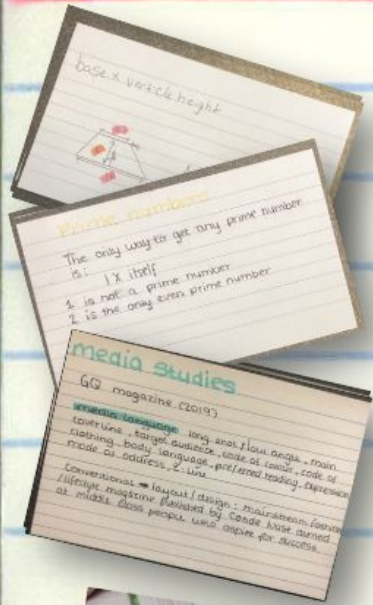 base x verticle height
Prime numbers
The only way to get any prime number
is: 1 x itself
1 is not a prime number
2 is the only even prime number
media studies
GQ magazine (2019)
media language long shot / low angle, main
coverline, target audience, code of colour, code of
clothing, body language, preferred reading, expression
mode of address, z-line
Conventional → layout / design: mainstream fashion
/lifestyle magazine published by Conde Nast aimed
at middle class people who aspire for success